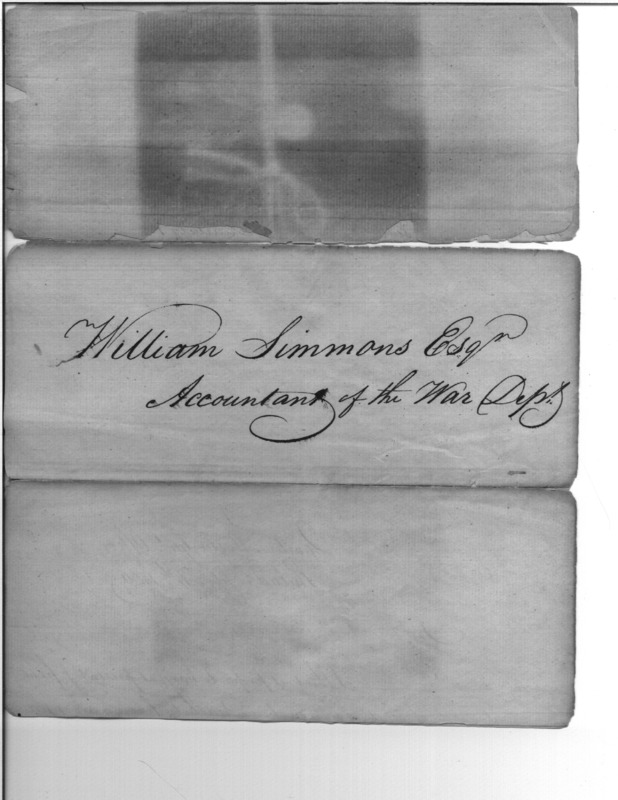 William Simmons Esqr
Accountant of the War Dept